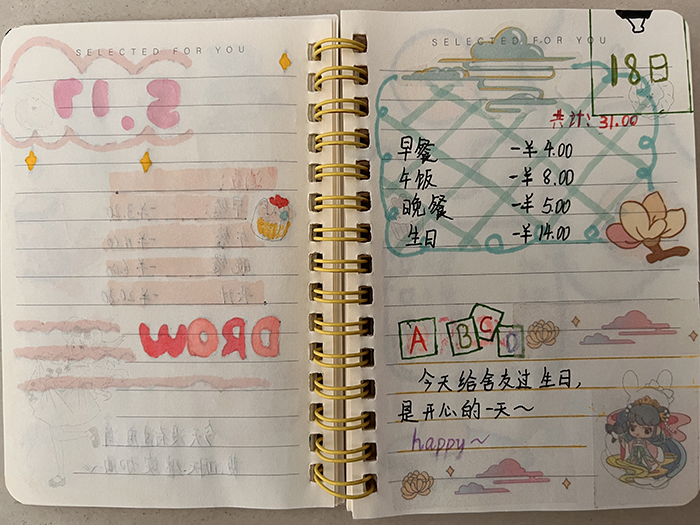 SELECTED FOR YOU
5.17
WORD
SELECTED FOR YOU
18日
共计：31.00
早餐 -¥4.00
午饭 -¥8.00
晚餐 -¥5.00
生日 -¥14.00
A B C D
今天给舍友过生日，
是开心的一天～
happy～